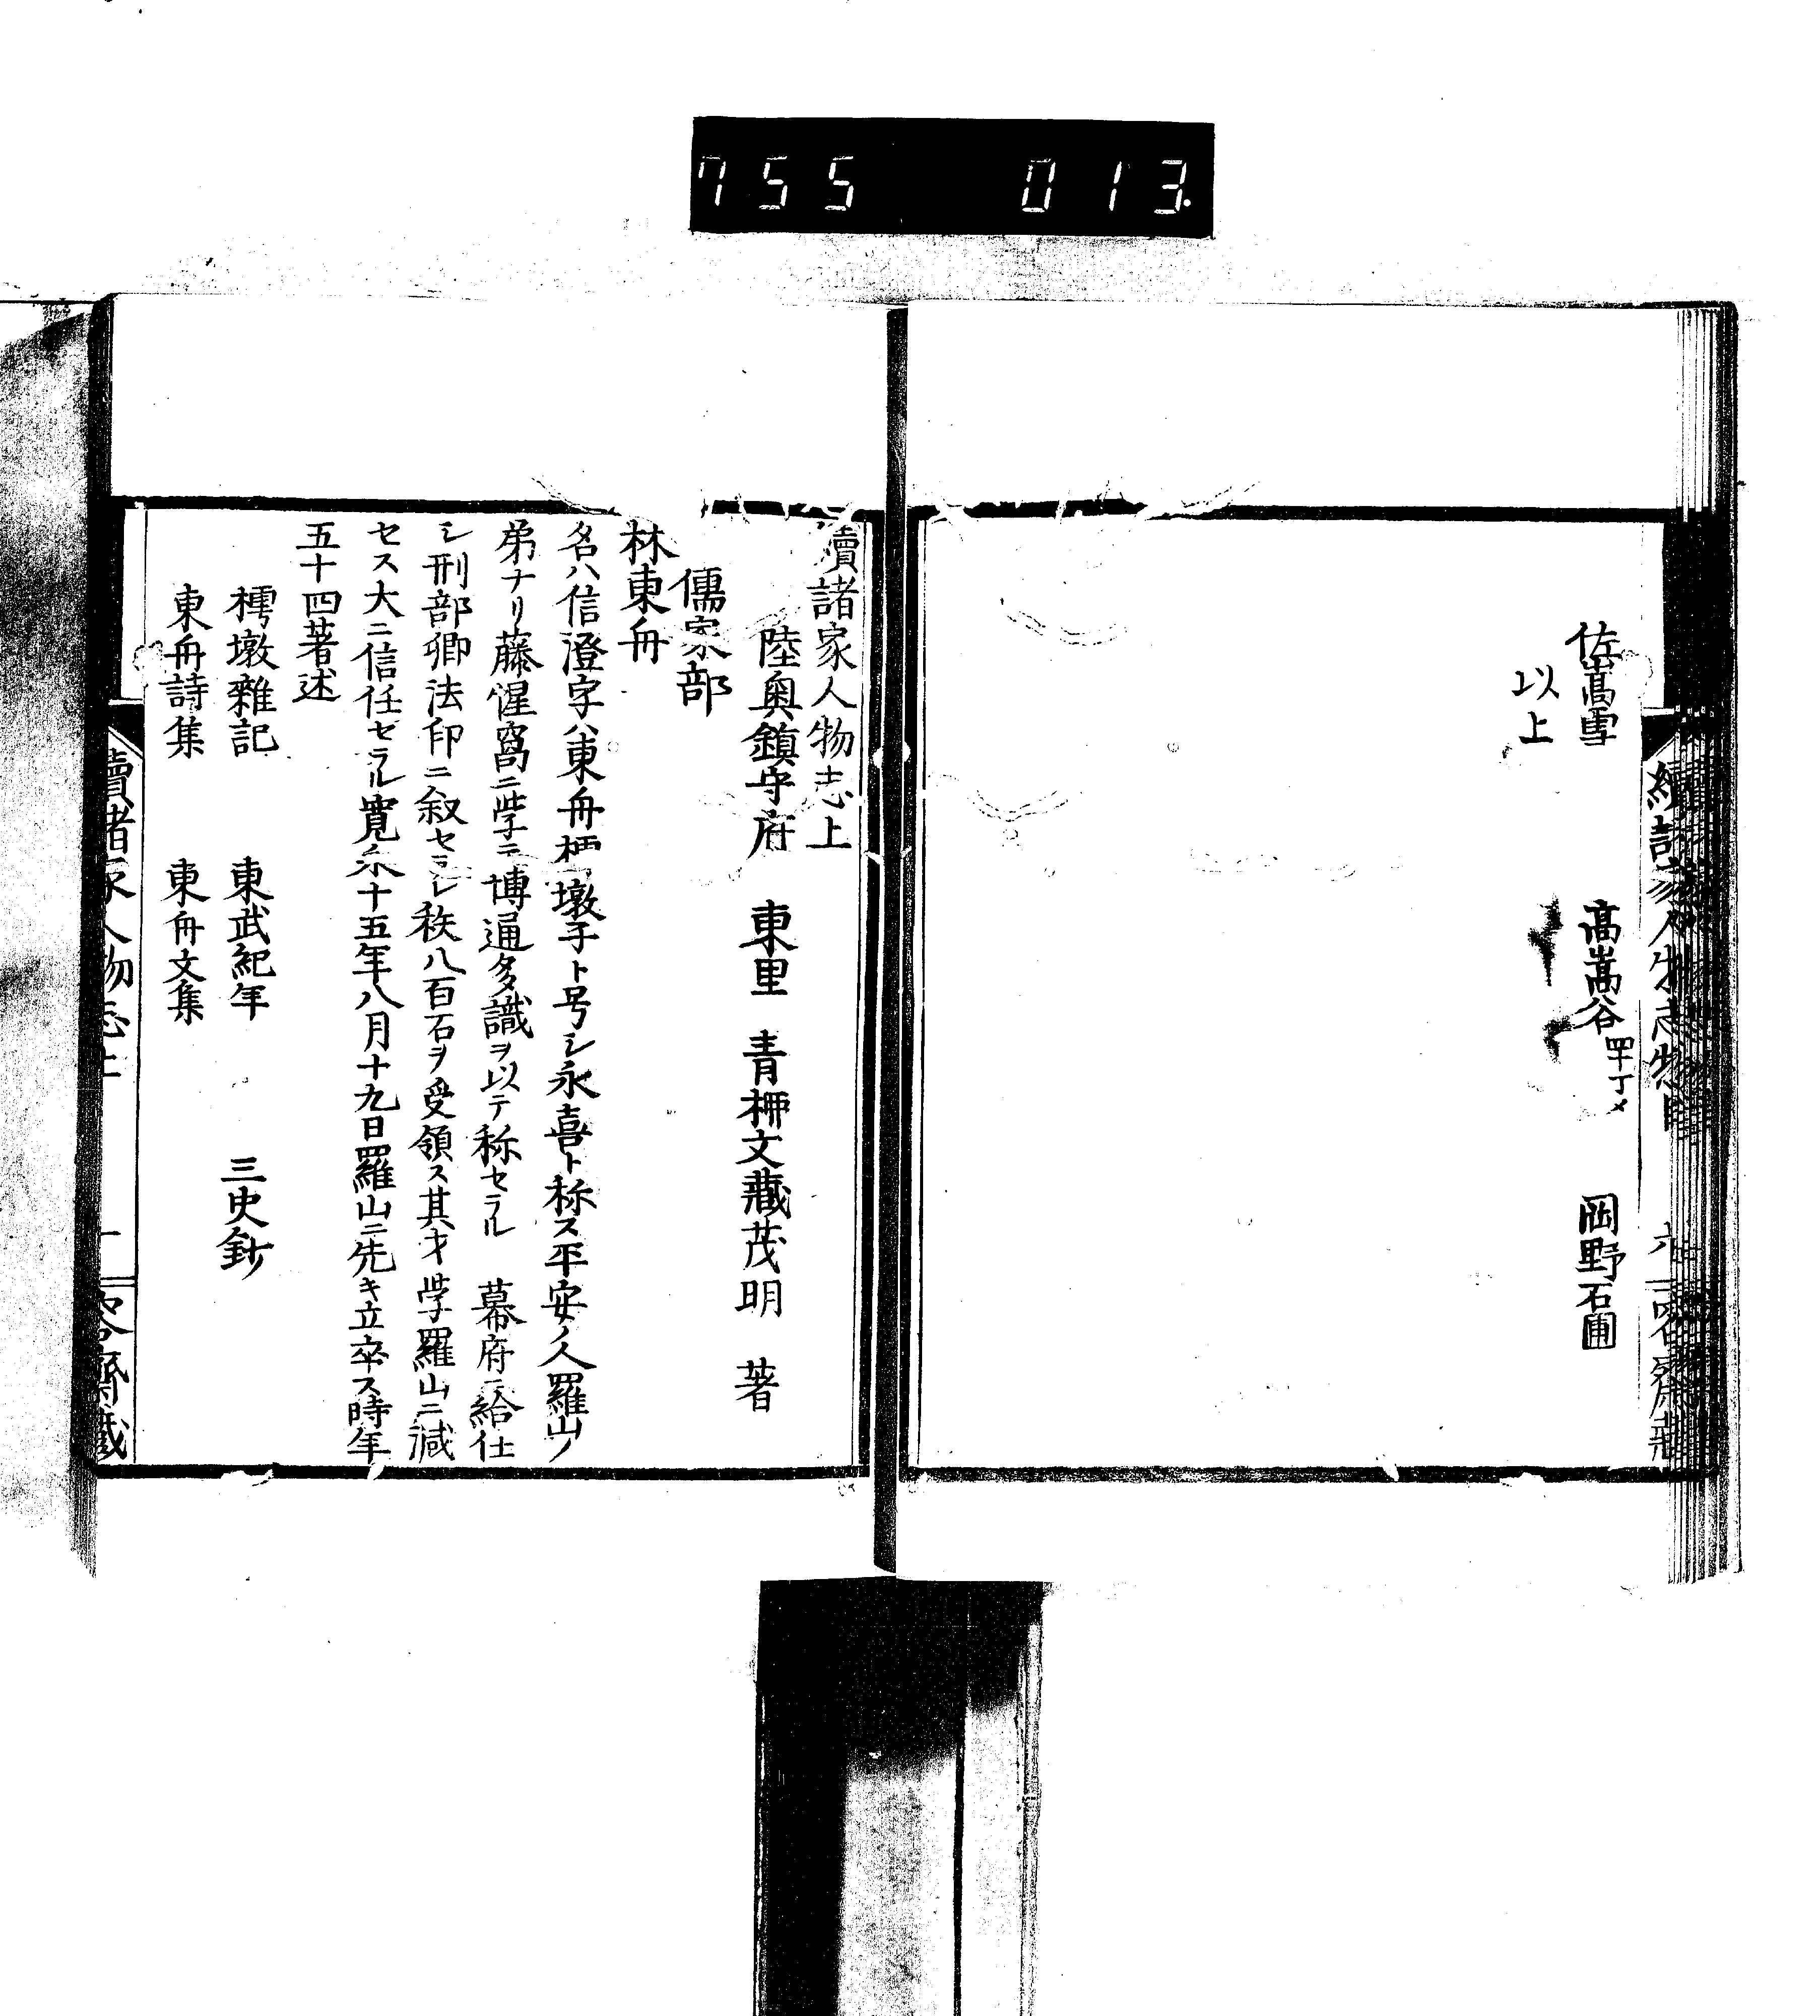 755 013.
佐嵩雪 高嵩谷 四十丁メ 岡野石圃
以上
續諸家人物志上
陸奥鎮守府 東里 青栁文藏茂明 著
儒家部
林東舟
名ハ信澄字ハ東舟樗墩子ト号シ永喜ト称ス平安ノ人羅山ノ
弟ナリ藤惺窩ニ学ニ博通多識ヲ以テ称セラル 幕府ニ給仕
シ刑部卿法印ニ叙セラレ秩八百石ヲ受領ス其才学羅山ニ減
セス大ニ信任セラル寛永十五年八月十九日羅山ニ先キ立卒ス時年
五十四著述
樗墩雜記 東武紀年 三史鈔
東舟詩集 東舟文集
續諸家人物志上